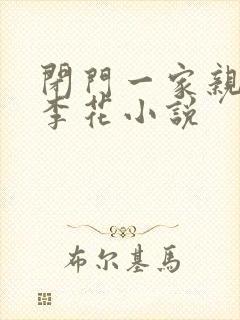 閉門一家親
李花小說
布尔基馬